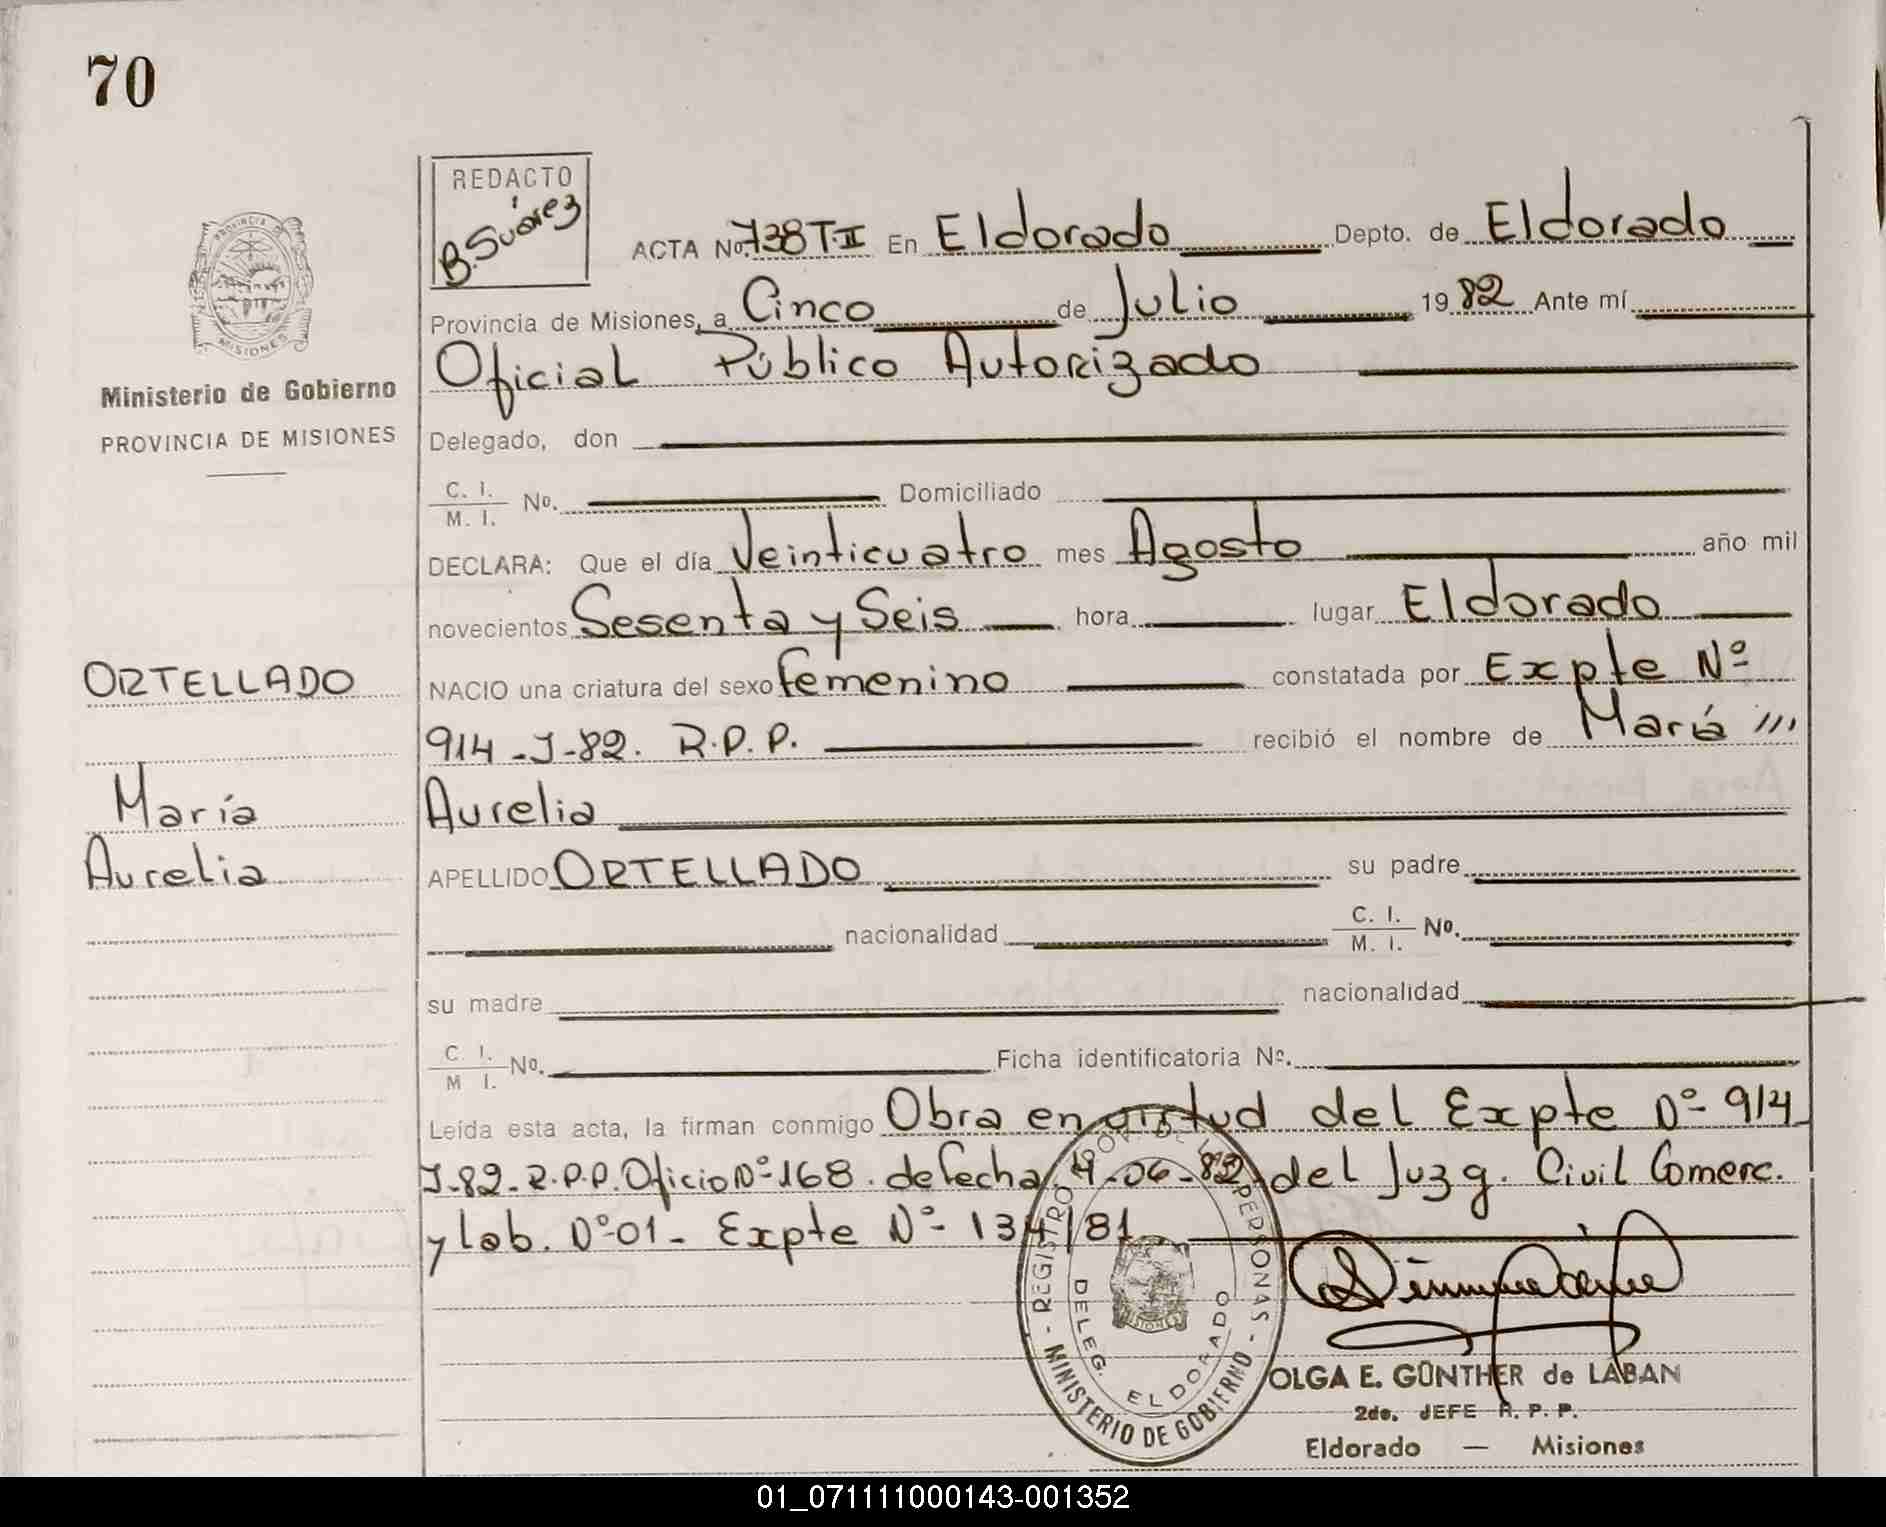 70
REDACTO
B. Suárez
ACTA No. 738 T.II En Eldorado Depto. de Eldorado
Provincia de Misiones, a Cinco de Julio 1982 Ante mí
Oficial Público Autorizado
Delegado, don
C. I.
M. I. No. Domiciliado
DECLARA: Que el día Veinticuatro mes Agosto año mil
novecientos Sesenta y Seis hora lugar Eldorado
NACIO una criatura del sexo femenino constatada por Expte Nº
914-J-82. R.P.P. recibió el nombre de María
Aurelia
APELLIDO ORTELLADO su padre
nacionalidad C. I. M. I. No.
su madre nacionalidad
C. I. M I. No. Ficha identificatoria Nº.
Leída esta acta, la firman conmigo Obra en virtud del Expte Nº 914
J-82-R.P.P. Oficio Nº 168. de fecha 4-06-82 del Juzg. Civil Comerc.
y lab. Nº 01- Expte Nº 134/81
PROVINCIA
MISIONES
Ministerio de Gobierno
PROVINCIA DE MISIONES
ORTELLADO
María
Aurelia
REGISTRO PROV. DE LAS PERSONAS
MINISTERIO DE GOBIERNO
DELEG. ELDORADO
MISIONES
OLGA E. GÜNTHER de LABAN
2do. JEFE R. P. P.
Eldorado — Misiones
01_071111000143-001352